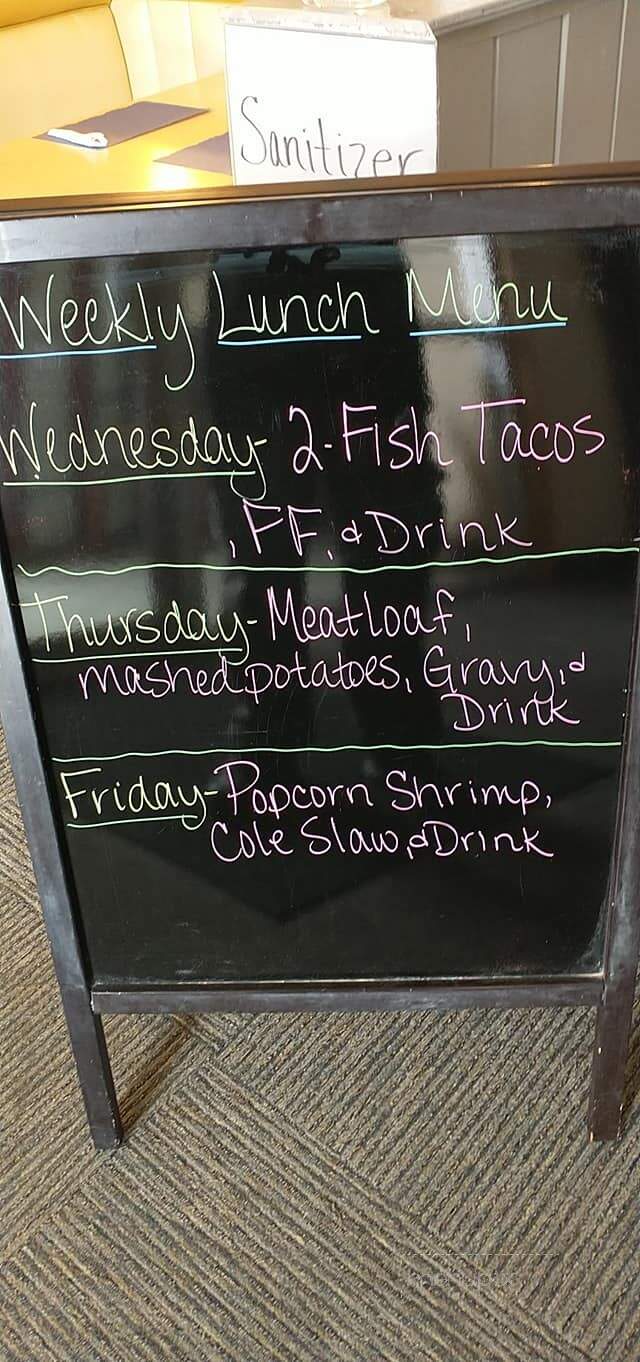 Sanitizer
Weekly Lunch Menu
Wednesday- 2-Fish Tacos
, FF, & Drink
Thursday- Meatloaf,
mashed potatoes, Gravy, &
Drink
Friday- Popcorn Shrimp,
Cole Slaw, & Drink